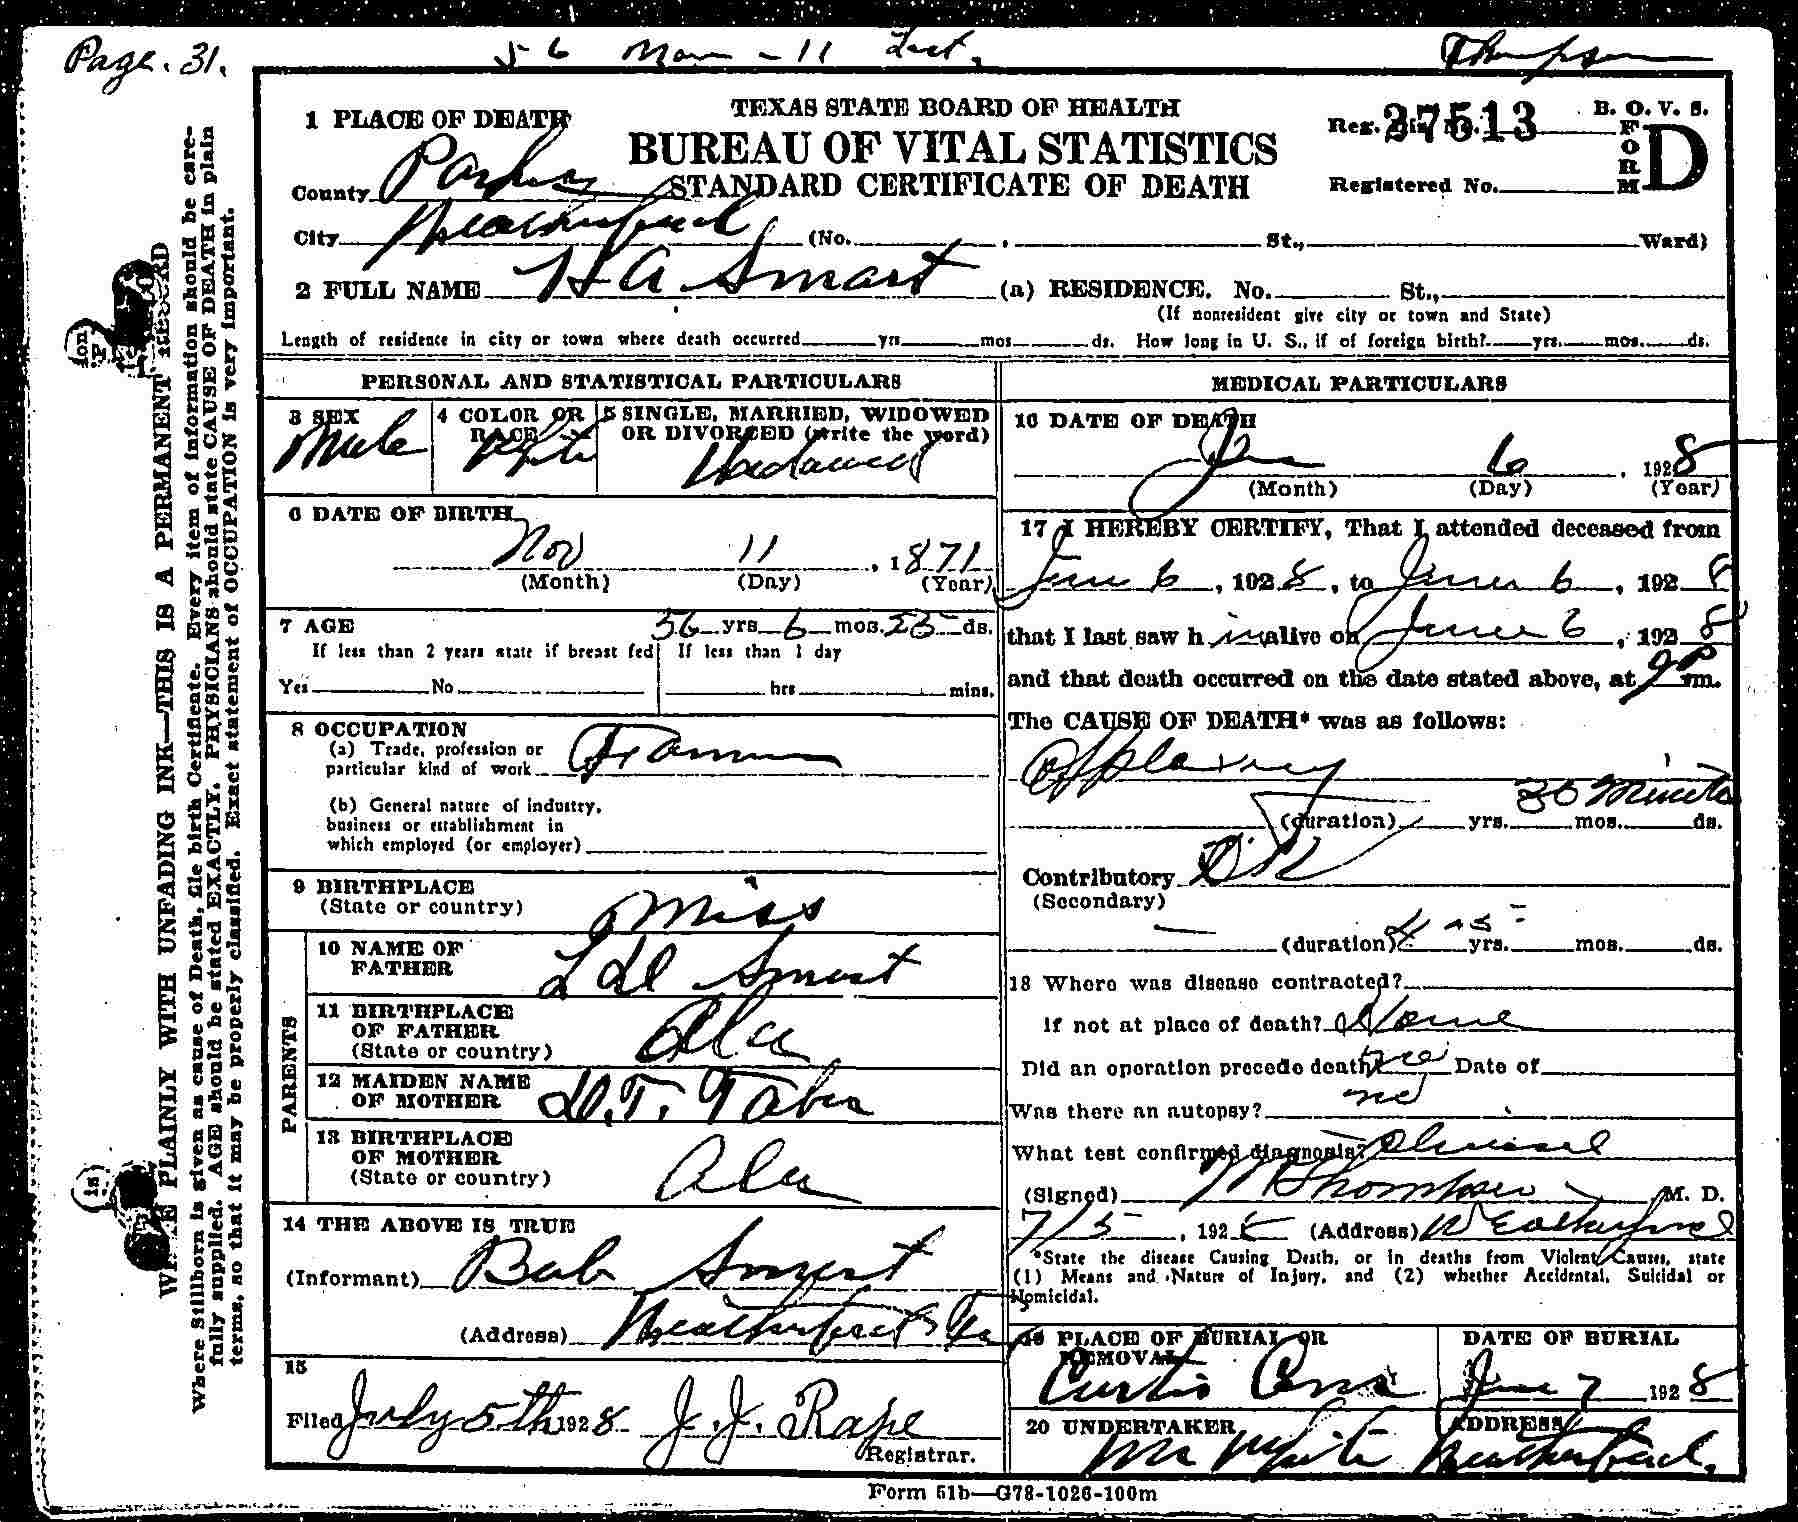 Page. 31.
56 Mar - 11 Lect. Thompson
TEXAS STATE BOARD OF HEALTH
BUREAU OF VITAL STATISTICS
STANDARD CERTIFICATE OF DEATH
Reg. Dis. No. 27513
B. O. V. S.
FORM D
Registered No.
1 PLACE OF DEATH
County Parker
City Weatherford (No. , St., Ward)
2 FULL NAME H A Smart (a) RESIDENCE. No. St.,
(If nonresident give city or town and State)
Length of residence in city or town where death occurred yrs mos ds. How long in U. S., if of foreign birth? yrs. mos. ds.
PERSONAL AND STATISTICAL PARTICULARS
3 SEX
Male
4 COLOR OR RACE
White
5 SINGLE, MARRIED, WIDOWED
OR DIVORCED (write the word)
Widowed
6 DATE OF BIRTH
Nov 11, 1871
(Month) (Day) (Year)
7 AGE 56 yrs 6 mos. 25 ds.
If less than 2 years state if breast fed If less than 1 day
Yes No hrs mins.
8 OCCUPATION
(a) Trade, profession or
particular kind of work Farmer
(b) General nature of industry,
business or establishment in
which employed (or employer)
9 BIRTHPLACE
(State or country) Miss
PARENTS
10 NAME OF
FATHER Smart
11 BIRTHPLACE
OF FATHER
(State or country) Ala
12 MAIDEN NAME
OF MOTHER
13 BIRTHPLACE
OF MOTHER
(State or country) Ala
14 THE ABOVE IS TRUE
(Informant) Bob Smart
(Address) Weatherford Tex
15
Filed July 5th 1928 J. J. Rape
Registrar.
MEDICAL PARTICULARS
16 DATE OF DEATH
June 6, 1928
(Month) (Day) (Year)
17 I HEREBY CERTIFY, That I attended deceased from
June 6, 1928, to June 6, 1928
that I last saw him alive on June 6, 1928
and that death occurred on the date stated above, at 9 P m.
The CAUSE OF DEATH* was as follows:
Apoplexy
30 Minutes
(duration) yrs. mos. ds.
Contributory
(Secondary)
(duration) 4 - 5 yrs. mos. ds.
18 Where was disease contracted?
if not at place of death? Home
Did an operation precede death? no Date of
Was there an autopsy? no
What test confirmed diagnosis? Clinical
(Signed) Thompson M. D.
7/5, 1928 (Address) Weatherford
*State the disease Causing Death, or in deaths from Violent Causes, state
(1) Means and Nature of Injury, and (2) whether Accidental, Suicidal or
Homicidal.
19 PLACE OF BURIAL OR
REMOVAL
Curtis Cem
DATE OF BURIAL
June 7 1928
20 UNDERTAKER
White
ADDRESS
Weatherford.
Form 51b—G78-1026-100m
WRITE PLAINLY WITH UNFADING INK—THIS IS A PERMANENT RECORD
Where Stillborn is given as cause of Death, file birth Certificate. Every item of information should be care-
fully supplied. AGE should be stated EXACTLY. PHYSICIANS should state CAUSE OF DEATH in plain
terms, so that it may be properly classified. Exact statement of OCCUPATION is very important.